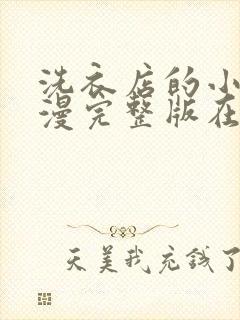 洗衣店的小
漫完整版在
天美我充钱了